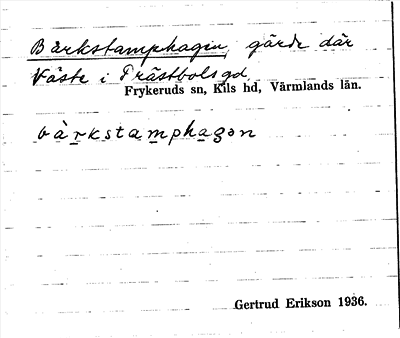 Barkstamphagen, gärde där
Väste i Prästbols gd,
Frykeruds sn, Kils hd, Värmlands län.
bàrkstamphagən
Gertrud Erikson 1936.